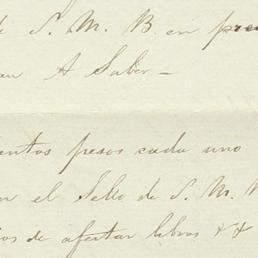 de S. M. B. en pre
an A Saber –
entos pesos cada uno
n el Sello de S. M.
os de afectar libros & &